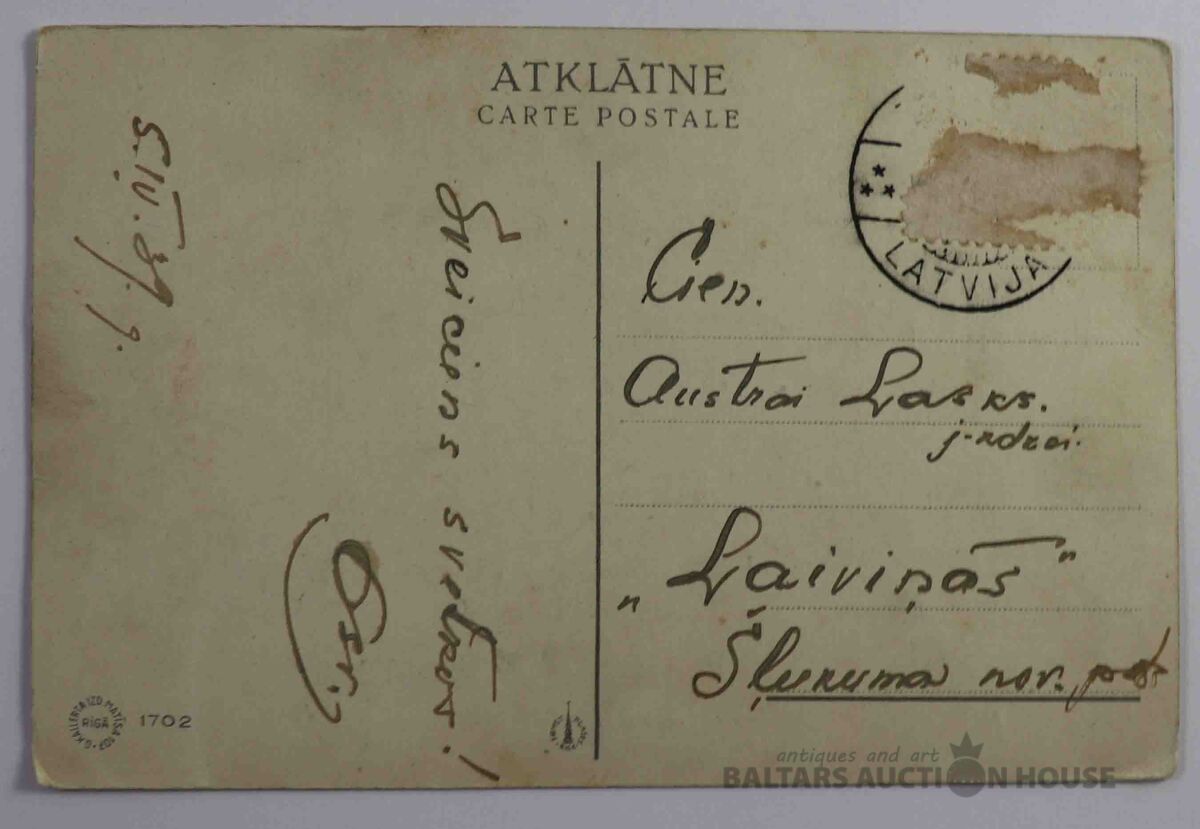 ATKLĀTNE
CARTE POSTALE
LATVIJA
5.IV.39.g.
Sveiciens svētkos!
Cien.
Austrai Lasks.
j-rdzei.
„Laiviņās"
Šļukuma nov. pst.
RĪGĀ
1702
antiques and art
BALTARS AUCTION HOUSE